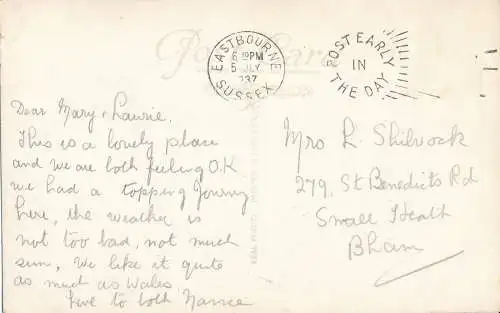 Post Card
EASTBOURNE
SUSSEX
5 JLY
POST EARLY
IN
THE DAY
Dear Mary & Laurie.
This is a lovely place
and we are both feeling O.K
we had a topping Journey
here, the weather is
not too bad, not much
sun, We like it quite
as much as Wales
Love to both
Mrs L. Shilvock
279, St Benedicts Rd
Small Heath
Bham